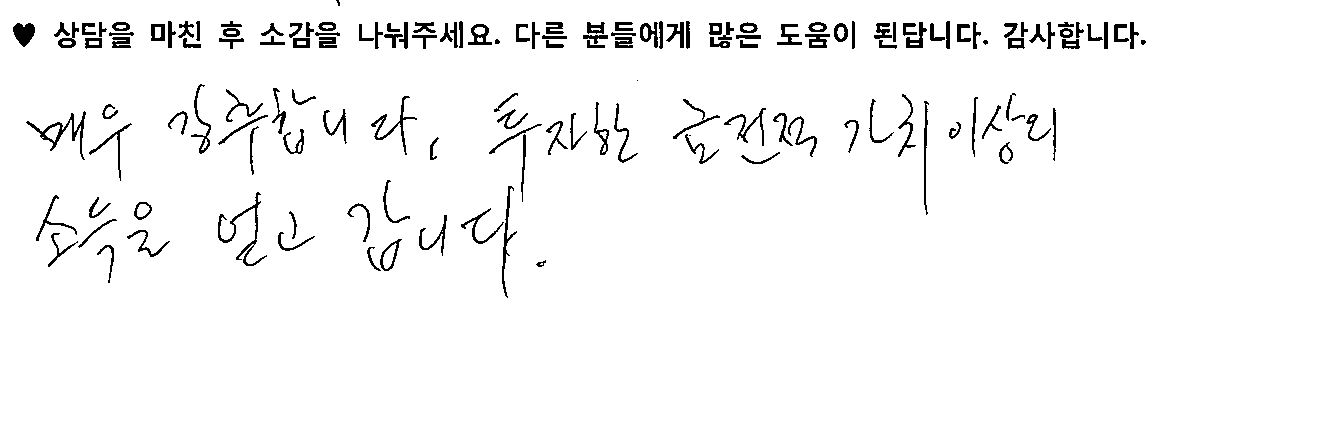 ♥ 상담을 마친 후 소감을 나눠주세요. 다른 분들에게 많은 도움이 된답니다. 감사합니다.
매우 강추합니다. 투자한 금전적 가치 이상의
소득을 얻고 갑니다.